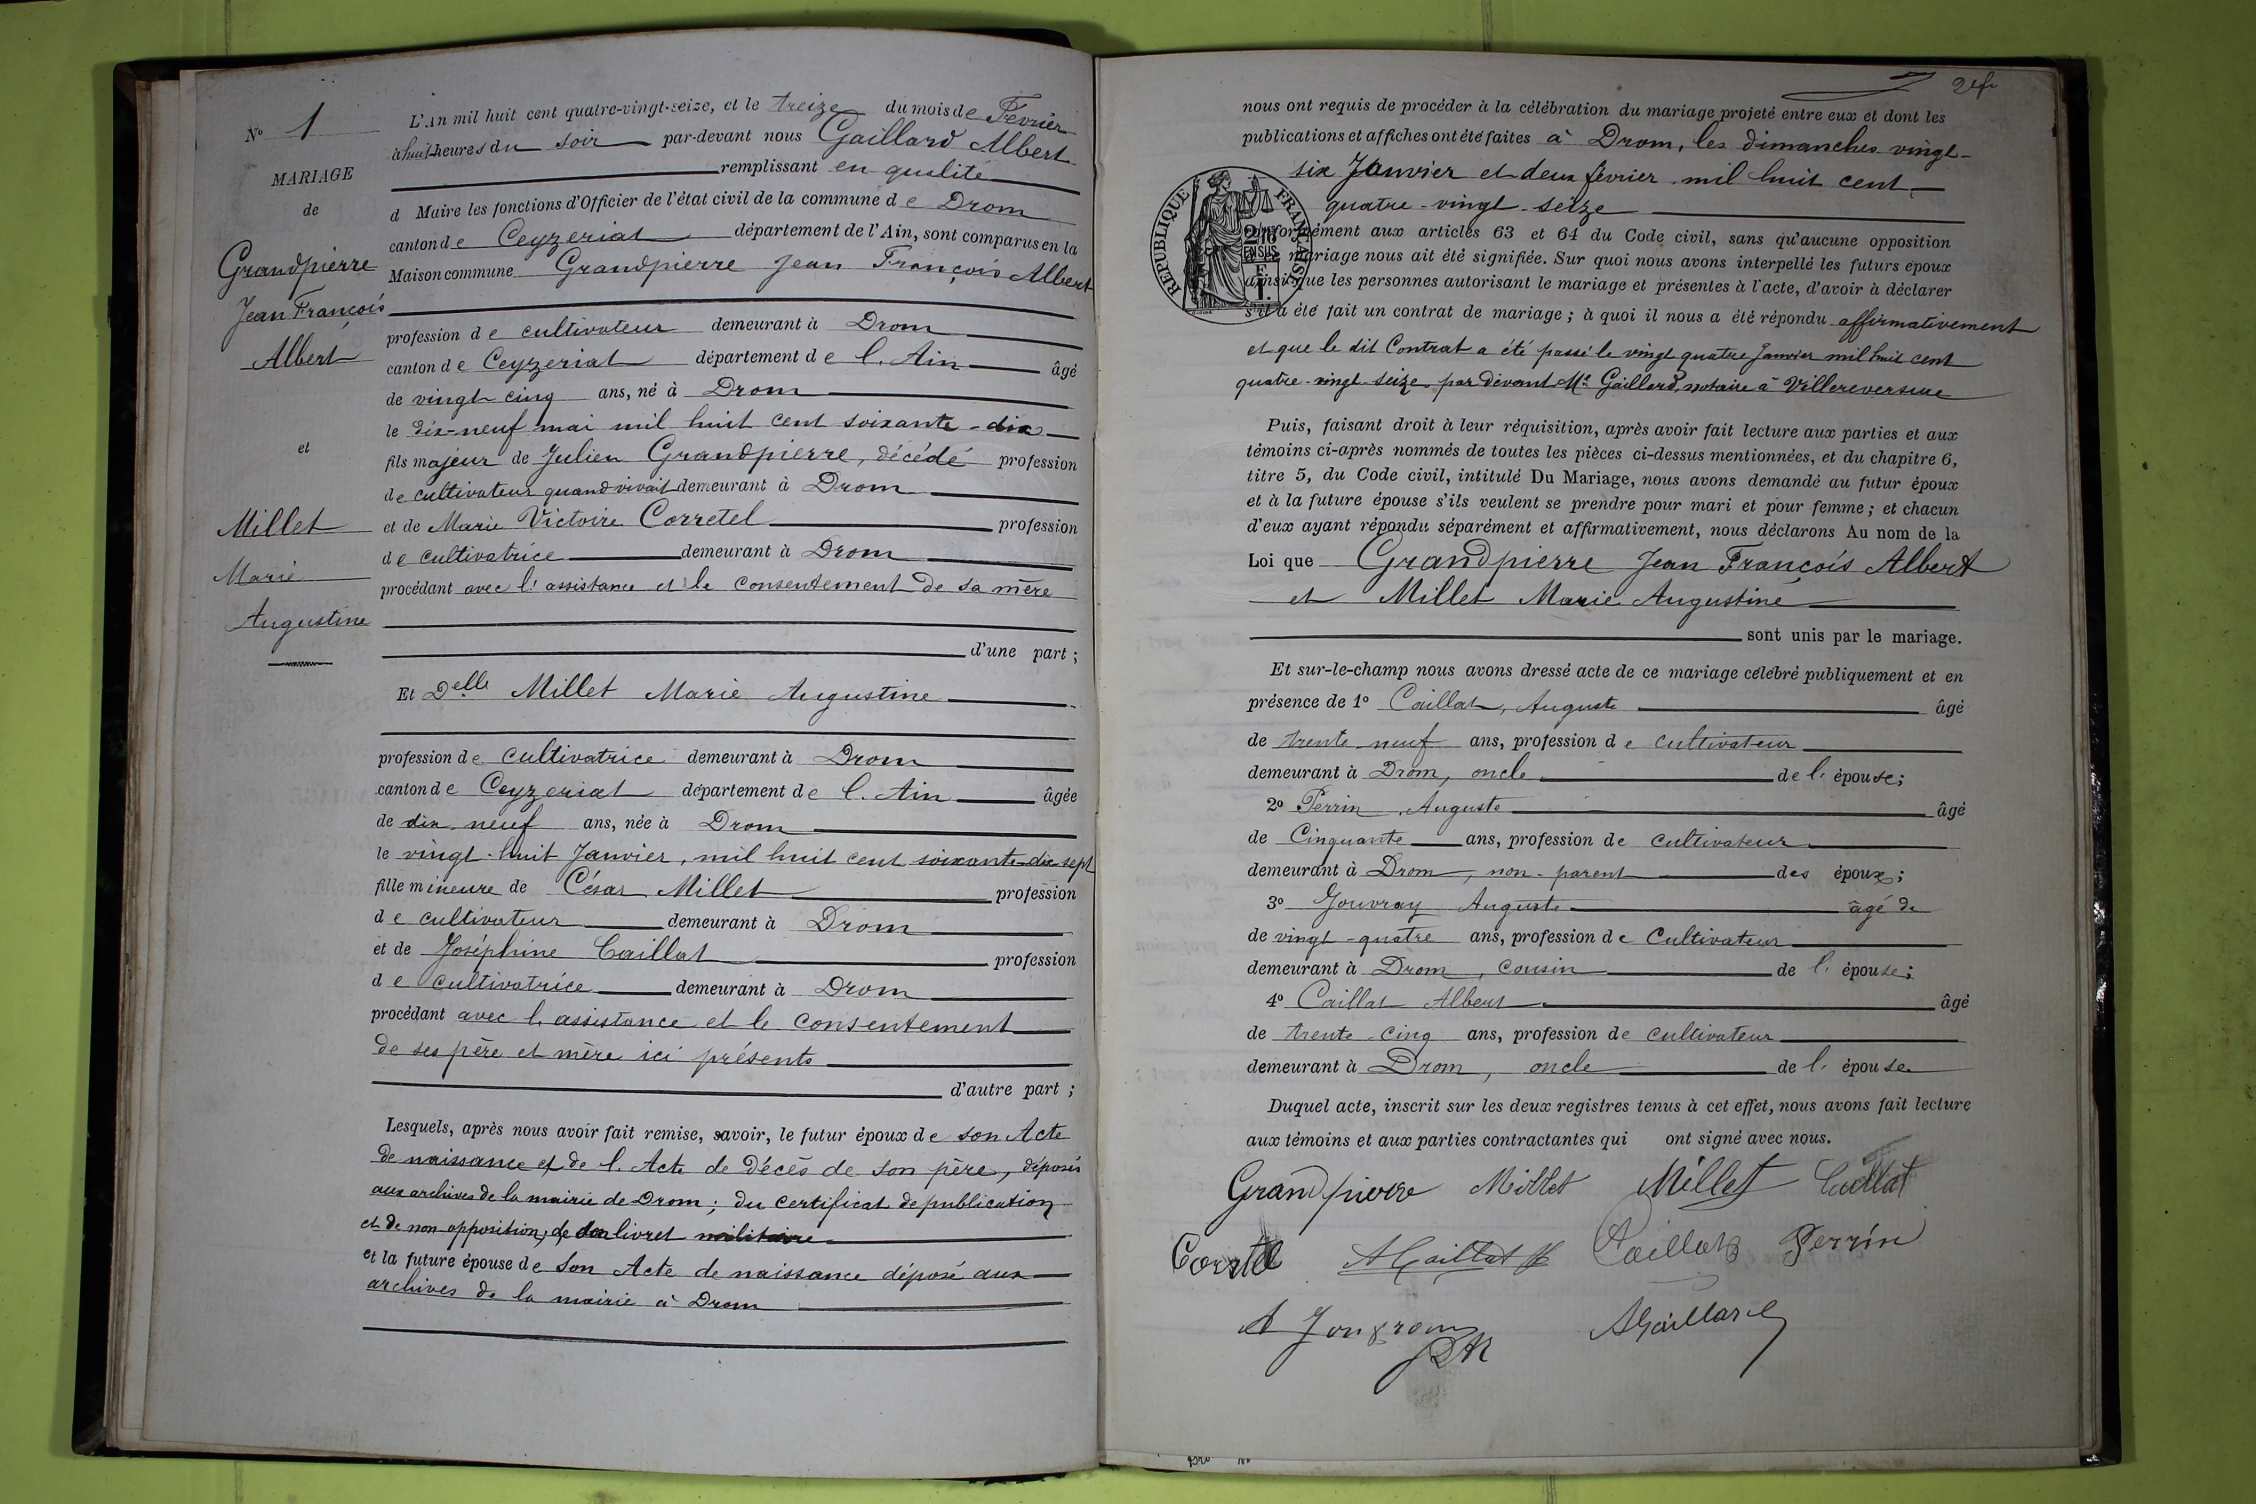 N° 1
MARIAGE
de
Grandpierre
Jean François
Albert
et
Millet
Marie
Augustine
L'An mil huit cent quatre-vingt-seize, et le treize du mois de Février
à huit heures du soir par-devant nous Gaillard Albert
remplissant en qualité
d Maire les fonctions d'Officier de l'état civil de la commune de Drom
canton de Ceyzeriat département de l'Ain, sont comparus en la
Maison commune Grandpierre Jean François Albert
profession de cultivateur demeurant à Drom
canton de Ceyzeriat département de l'Ain âgé
de vingt cinq ans, né à Drom
le dix-neuf mai mil huit cent soixante-dix
fils majeur de Julien Grandpierre, décédé profession
de cultivateur quand vivait demeurant à Drom
et de Marie Victoire Corretel profession
de cultivatrice demeurant à Drom
procédant avec l'assistance et le consentement de sa mère
d'une part ;
Et Delle Millet Marie Augustine
profession de cultivatrice demeurant à Drom
canton de Ceyzeriat département de l'Ain âgée
de dix-neuf ans, née à Drom
le vingt-huit Janvier, mil huit cent soixante-dix-sept
fille mineure de César Millet profession
de cultivateur demeurant à Drom
et de Joséphine Caillat profession
de cultivatrice demeurant à Drom
procédant avec l'assistance et le consentement
de ses père et mère ici présents
d'autre part ;
Lesquels, après nous avoir fait remise, savoir, le futur époux de son Acte
de naissance et de l'Acte de décès de son père, déposés
aux archives de la mairie de Drom ; du certificat de publication
et de non opposition, de son livret militaire
et la future épouse de son Acte de naissance déposé aux
archives de la mairie à Drom
nous ont requis de procéder à la célébration du mariage projeté entre eux et dont les
publications et affiches ont été faites à Drom, les dimanches vingt-
six Janvier et deux février mil huit cent
quatre-vingt-seize
conformément aux articles 63 et 64 du Code civil, sans qu'aucune opposition
mariage nous ait été signifiée. Sur quoi nous avons interpellé les futurs époux
ainsi que les personnes autorisant le mariage et présentes à l'acte, d'avoir à déclarer
s'il a été fait un contrat de mariage ; à quoi il nous a été répondu affirmativement
et que le dit Contrat a été passé le vingt quatre Janvier mil huit cent
quatre-vingt-seize par devant Me Gaillard, notaire à Villereversure
RÉPUBLIQUE FRANÇAISE
EN SUS
Puis, faisant droit à leur réquisition, après avoir fait lecture aux parties et aux
témoins ci-après nommés de toutes les pièces ci-dessus mentionnées, et du chapitre 6,
titre 5, du Code civil, intitulé Du Mariage, nous avons demandé au futur époux
et à la future épouse s'ils veulent se prendre pour mari et pour femme ; et chacun
d'eux ayant répondu séparément et affirmativement, nous déclarons Au nom de la
Loi que Grandpierre Jean François Albert
et Millet Marie Augustine
sont unis par le mariage.
Et sur-le-champ nous avons dressé acte de ce mariage célébré publiquement et en
présence de 1° Caillat, Auguste âgé
de trente-neuf ans, profession de cultivateur
demeurant à Drom, oncle de l'épouse ;
2° Perrin Auguste âgé
de Cinquante ans, profession de cultivateur
demeurant à Drom, non-parent des époux ;
3° Jouvray Auguste âgé de
de vingt-quatre ans, profession de Cultivateur
demeurant à Drom, cousin de l'épouse ;
4° Caillat Albert âgé
de trente-cinq ans, profession de cultivateur
demeurant à Drom, oncle de l'épouse
Duquel acte, inscrit sur les deux registres tenus à cet effet, nous avons fait lecture
aux témoins et aux parties contractantes qui ont signé avec nous.
Grandpierre Millet Millet Caillat
A Caillat Caillat Perrin
A Gaillard